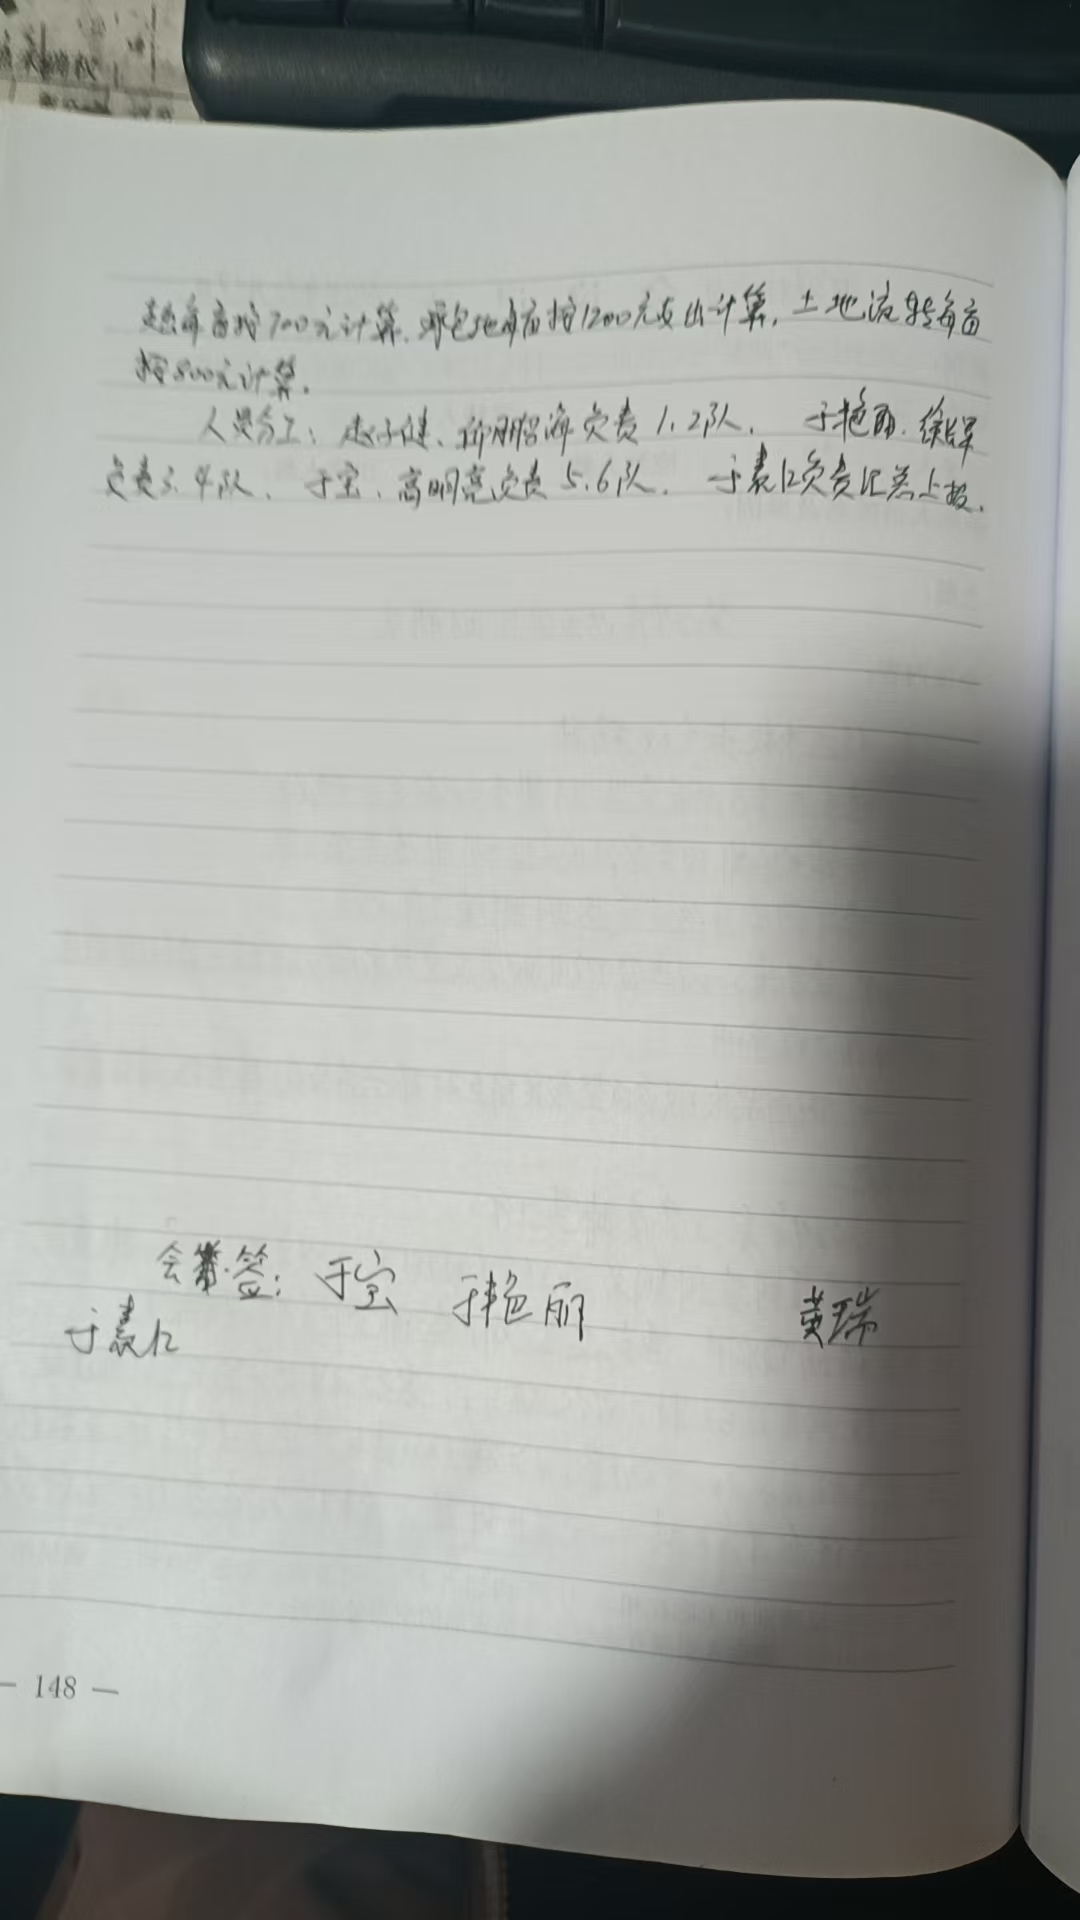 每亩按700元计算.承包地每亩按1200元支出计算,土地流转每亩
按800元计算.
人员分工:赵子健、鹏海负责1.2队. 于艳丽.徐军
负责3.4队. 于宝、高明亮负责5.6队. 于表仁负责汇总上报.
会签: 于宝 于艳丽 黄瑞
于表仁
— 148 —